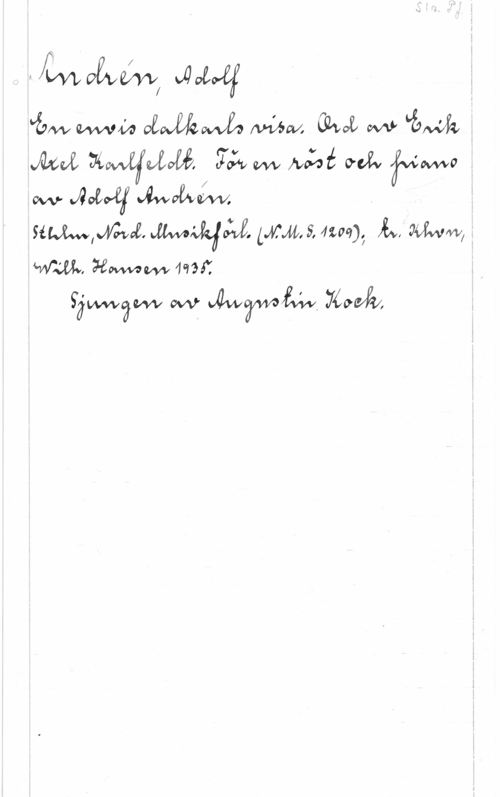 S1n. Pf
Andrén, Adolf
En envis dalkarls visa. Ord av Erik
Axel Karlfeldt. För en röst och piano
av Adolf Andrén.
Sthlm, Nord. Musikförl. (N.M.S. 1209); tr. Khvn,
Wilh. Hansen 1935.
Sjungen av Augustin Kock.